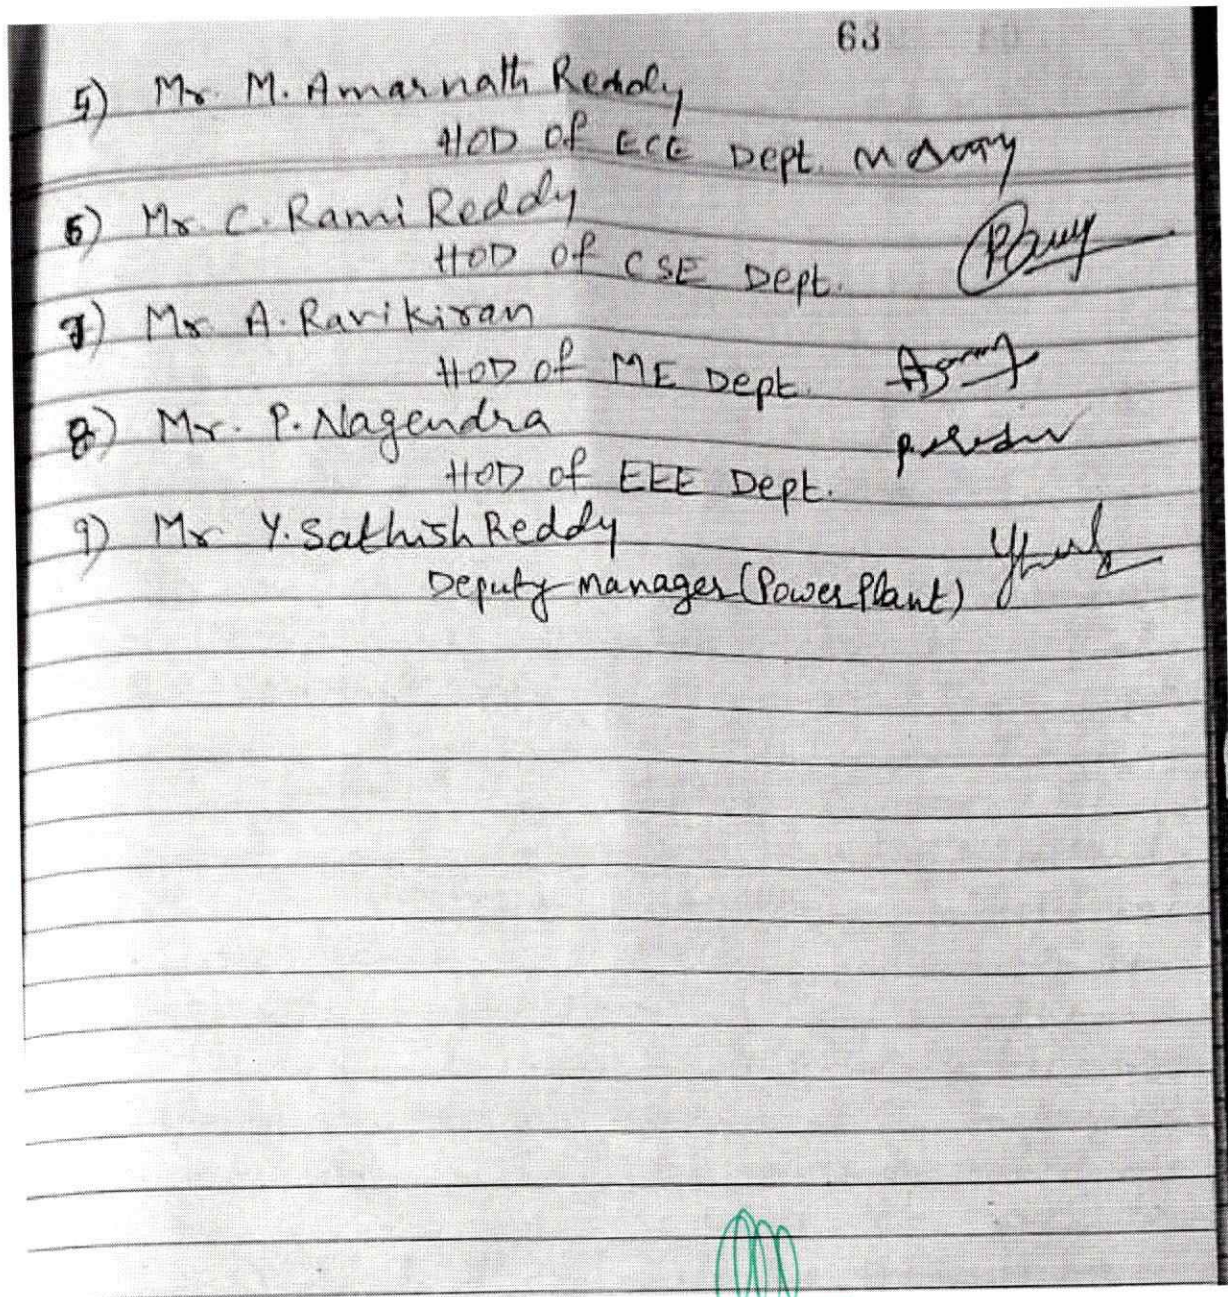 63
5) Mr. M. Amarnath Reddy
HOD of ECE Dept.
6) Mr. C. Rami Reddy
HOD of CSE Dept.
7) Mr A. Ravikiran
HOD of ME Dept.
8) Mr. P. Nagendra
HOD of EEE Dept.
9) Mr Y. Sathish Reddy
Deputy manager (Power Plant)